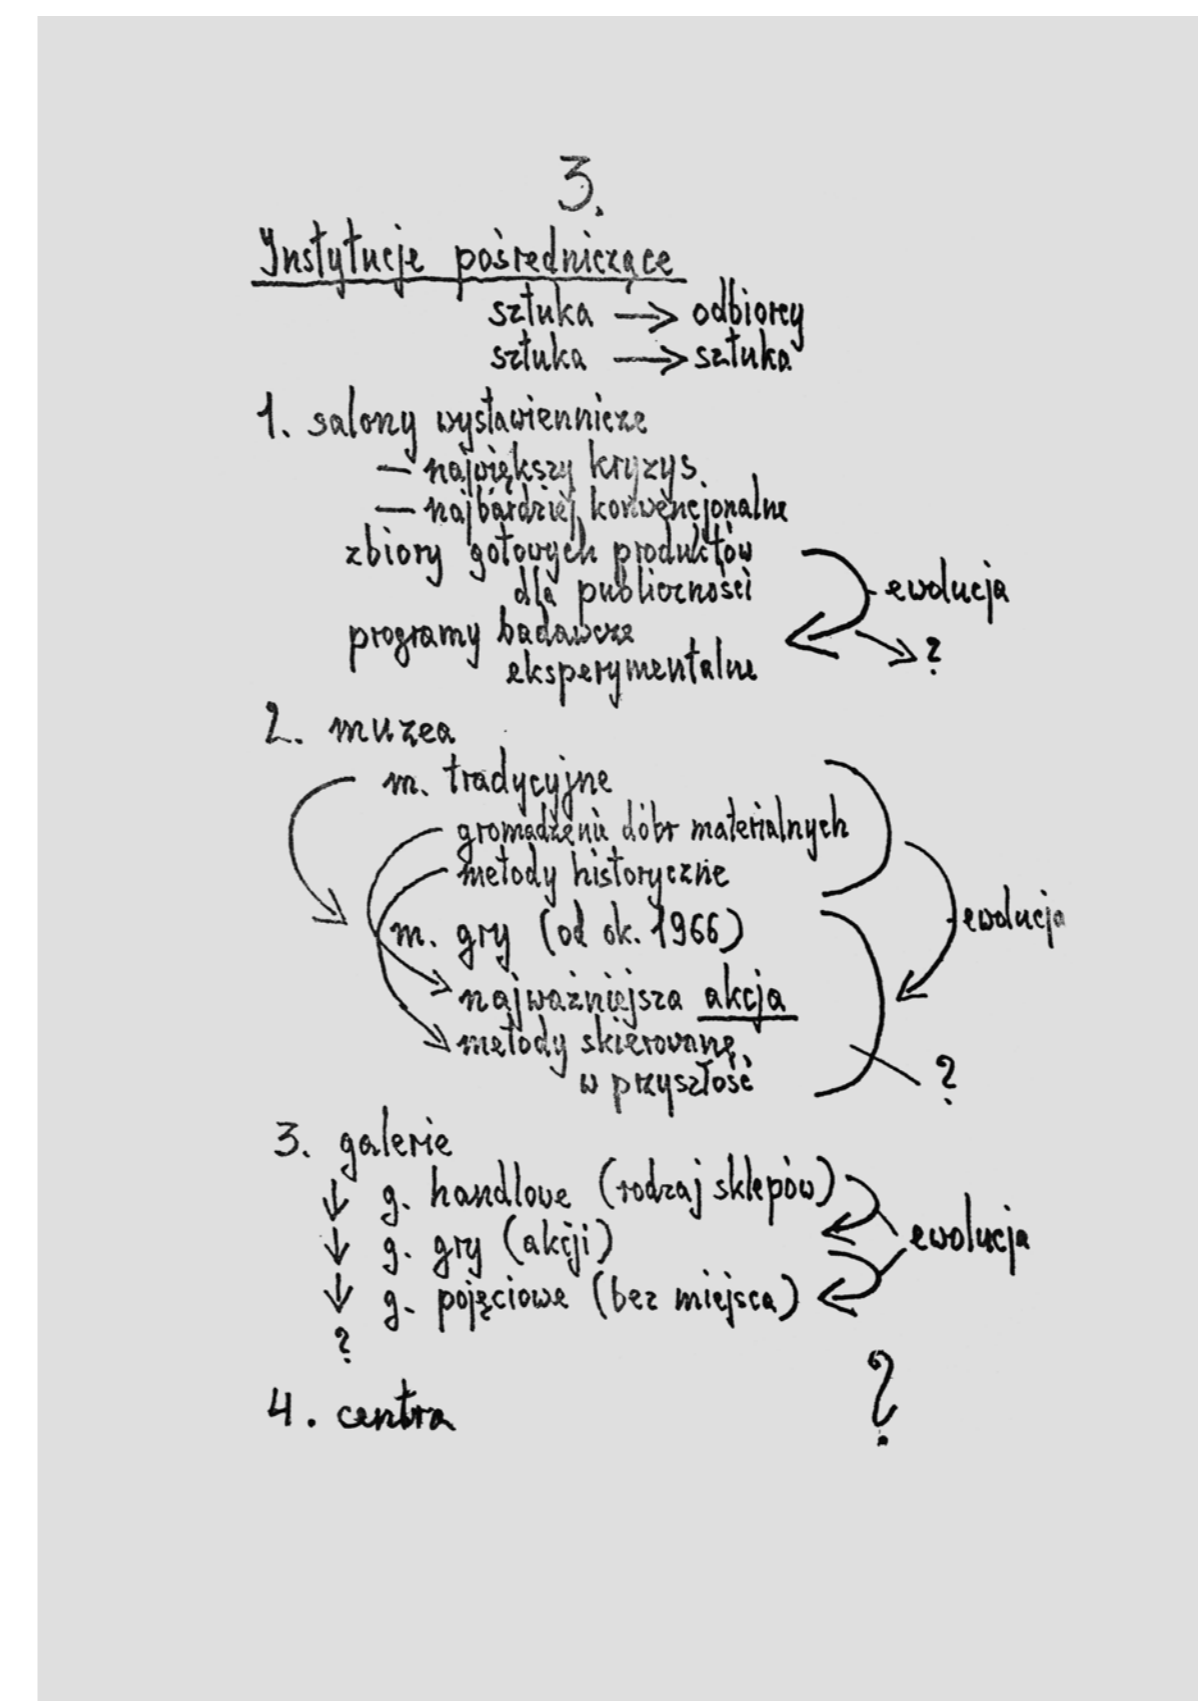 3.
Instytucje pośredniczące
sztuka → odbiorcy
sztuka → sztuka
1. salony wystawiennicze
— największy kryzys
— najbardziej konwencjonalne
zbiory gotowych produktów
dla publiczności
ewolucja
programy badawcze
?
eksperymentalne
2. muzea
m. tradycyjne
gromadzenie dóbr materialnych
metody historyczne
ewolucja
m. gry (od ok. 1966)
najważniejsza akcja
metody skierowane
w przyszłość
?
3. galerie
g. handlowe (rodzaj sklepów)
ewolucja
g. gry (akcji)
g. pojęciowe (bez miejsca)
?
4. centra
?